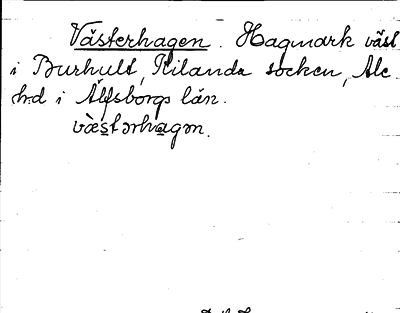 Västerhagen. Hagmark väst
i Burhult, Kilanda socken, Ale
hd i Älfsborgs län.
væ̀stərhagən.